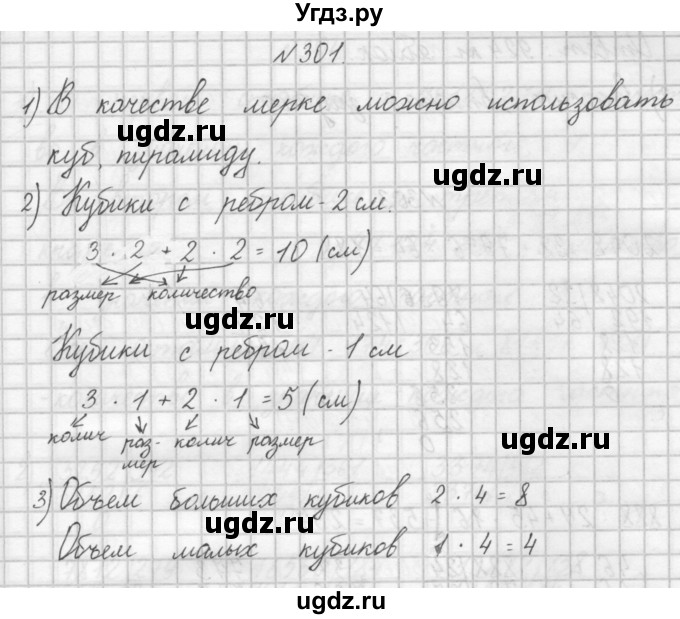 Угдз.ру
№301.
1) В качестве мерке можно использовать
ugdz.ru
куб, пирамиду.
ugdz.ru
2) Кубики с ребром - 2 см.
ugdz.ru
3 · 2 + 2 · 2 = 10 (см)
размер количество
ugdz.ru
Кубики с ребром - 1 см
3 · 1 + 2 · 1 = 5 (см)
ugdz.ru
колич раз- колич размер
мер
ugdz.ru
3) Объем больших кубиков 2 · 4 = 8
ugdz.ru
Объем малых кубиков 1 · 4 = 4
ugdz.ru